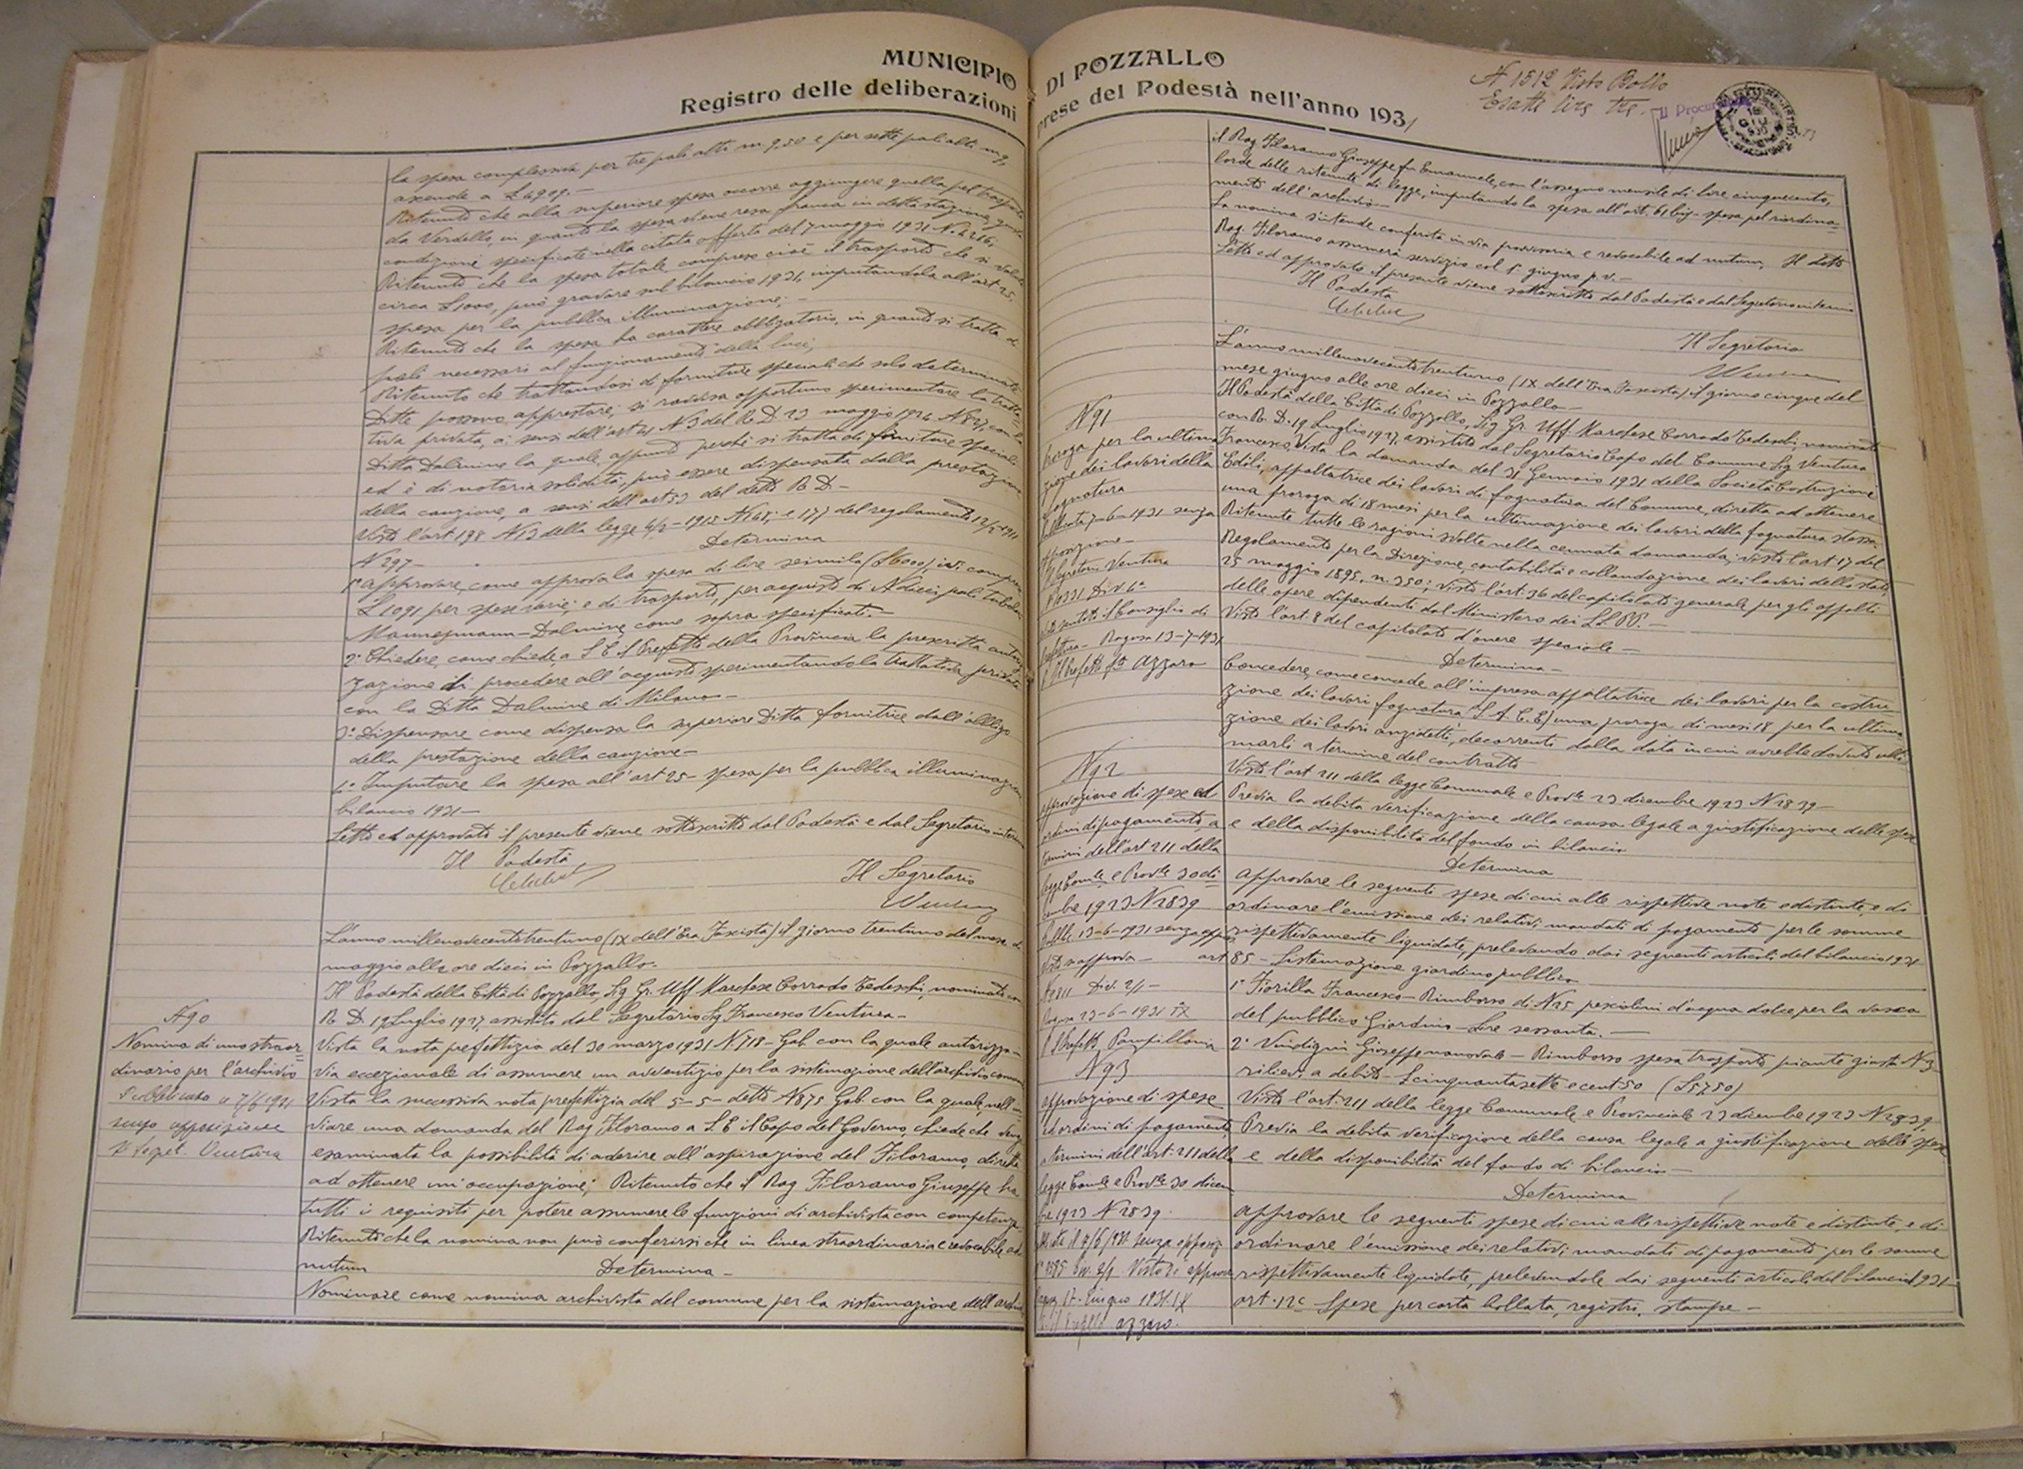 MUNICIPIO DI POZZALLO
Registro delle deliberazioni prese del Podestà nell'anno 1931
N 1512 Visto Bollo
Esatte lire tre.
Il Procuratore
la spesa complessiva per tre pali alti m. 9,50 e per sette pali alti m 9,
ascende a £ 4909.-
Ritenuto che alla superiore spesa occorre aggiungere quella pel trasporto
da Verdello, in quanto la spesa viene resa franca in detta stazione, giusta
condizioni specificate nella citata offerta del 7 maggio 1931 N. 4216;
Ritenuto che la spesa totale compreso cioè il trasporto che si valuta
circa £ 1000, può gravare sul bilancio 1931, imputandola all'art 25,
spesa per la pubblica illuminazione;-
Ritenuto che la spesa ha carattere obbligatorio, in quanto si tratta di
pali necessari al funzionamento della luce;
Ritenuto che trattandosi di forniture speciali che solo determinate
Ditte possono apprestare, si ravvisa opportuno sperimentare la tratta-
tiva privata, ai sensi dell'art 41 N 3 del R. D. 23 maggio 1924 N 827, con la
Ditta Dalmine la quale, appunto perché si tratta di forniture speciali
ed è di notoria solidità, può essere dispensata dalla prestazione
della cauzione, a sensi dell'art 53 del detto R D-
Visto l'art 198 N 13 della legge 4/2-1915 N 148; e 177 del regolamento 12/2-1911
N 297-
Determina
1° approvare, come approva la spesa di lire seimila (£ 6000), ivi comprese
£ 1091 per spese varie; e di trasporto, per acquisto di N dieci pali tubolari
Mannesmann-Dalmine, come sopra specificati.-
2° Chiedere, come chiede, a S E il Prefetto della Provincia la prescritta autoriz-
zazione di procedere all'acquisto sperimentando la trattativa privata
con la Ditta Dalmine di Milano-
3° Dispensare come dispensa la superiore Ditta fornitrice dall'obbligo
della prestazione della cauzione-
4° Imputare la spesa all'art 25- spesa per la pubblica illuminazione
bilancio 1931-
Letto ed approvato il presente viene sottoscritto dal Podestà e dal Segretario interino
Il Podestà
Il Segretario
L'anno millenovecentotrentuno (IX dell'Era Fascista) il giorno trentuno del mese di
maggio alle ore dieci in Pozzallo.
Il Podestà della Città di Pozzallo, Sig Gr. Uff Marchese Corrado Tedeschi, nominato con
N 90
R. D. 19 Luglio 1927, assistito dal Segretario Sig Francesco Ventura-
Nomina di uno straor=
dinario per l'archivio
Pubblicato a 7/6 1931
senza opposizione
Il Segret. Ventura
Vista la nota prefettizia del 30 marzo 1931 N 718- Gab con la quale autorizza in
via eccezionale di assumere un avventizio per la sistemazione dell'archivio comunale
Vista la successiva nota prefettizia del 5-5- detto N 875 Gab con la quale, nell'in-
viare una domanda del Rag Floramo a S. E il Capo del Governo, chiede che venga
esaminata la possibilità di aderire all'aspirazione del Floramo, diretta
ad ottenere un'occupazione; Ritenuto che il Rag Floramo Giuseppe ha
tutti i requisiti per potere assumere le funzioni di archivista con competenza
Ritenuto che la nomina non può conferirsi che in linea straordinaria e revocabile ad
nutum Determina-
Nominare come nomina archivista del comune per la sistemazione dell'archivio
il Rag Floramo Giuseppe fu Emanuele, con l'assegno mensile di lire cinquecento,
lorde delle ritenute di legge, imputando la spesa all'art. 61 bis- spesa pel riordina=
mento dell'archivio-
La nomina s'intende conferita in via provvisoria e revocabile ad nutum. Il detto
Rag. Floramo assumerà servizio col 1° giugno p.v.-
Letto ed approvato il presente viene sottoscritto dal Podestà e dal Segretario interino
Il Podestà
Il Segretario
L'anno millenovecentotrentuno (IX dell'Era Fascista) il giorno cinque del
mese giugno alle ore dieci in Pozzallo-
N 91
Proroga per la ultima-
zione dei lavori della
fognatura
Pubblicata 7-6-1931 senza
opposizione-
Il Segretario Ventura
N 14331 Div 4ª
prefettura- Ragusa 13-7-1931
Il Prefetto fto Azzaro
Il Podestà della Città di Pozzallo, Sig Gr. Uff Marchese Corrado Tedeschi, nominato
con R. D. 19 Luglio 1927, assistito dal Segretario Capo del Comune Sig Ventura
Francesco, Vista la domanda del 31 Gennaio 1931 della Società Costruzioni
Edili, appaltatrice dei lavori di fognatura del Comune, diretta ad ottenere
una proroga di 18 mesi per la ultimazione dei lavori della fognatura stessa.
Ritenute tutte le ragioni svolte nella cennata domanda; visto l'art 17 del
Regolamento per la Direzione, contabilità e collaudazione dei lavori dello stato,
25 maggio 1895, n. 350; visto l'art. 36 del capitolato generale per gli appalti
delle opere dipendenti dal Ministero dei LL. PP.-
Visto l'art. 8 del capitolato d'onere speciale-
Determina-
Concedere, come concede all'impresa appaltatrice dei lavori per la costru-
zione dei lavori fognatura (S. A. C. E) una proroga di mesi 18 per la ultima-
zione dei lavori anzidetti, decorrenti dalla data in cui avrebbe dovuto ulti-
marli a termine del contratto
N 92
approvazione di spese ed
ordini di pagamento, a
termini dell'art 211 della
legge Comle e Provle 30 di-
cembre 1923 N 2839
Pubbl. 13-6-1931 senza oppos.
Visto si approva-
N 2811 Div. 2/1-
Ragusa 23-6-1931 IX
Il Prefetto Pampillonia
Visto l'art 211 della legge Comunale e Provle 23 dicembre 1923 N 2839-
Previa la debita verificazione della causa legale a giustificazione delle spese
e della disponibilità del fondo in bilancio
Determina
approvare le seguenti spese di cui alle rispettive note e distinte, e di
ordinare l'emissione dei relativi mandati di pagamento per le somme
rispettivamente liquidate, prelevando dai seguenti articoli del bilancio 1931
art 85- Sistemazione giardino pubblico
1° Fiorilla Francesco- Rimborso di N 25 pesciolini d'acqua dolce, per la vasca
del pubblico Giardino- Lire sessanta.-
2° Vindigni Giuseppe manovale- Rimborso spesa trasporto piante giusta N 3
rilievi a debito- L cinquantasette e cent 50 (L 57,50)
N 93
approvazione di spese
ed ordini di pagamento
a termini dell'Art. 211 della
legge Comle e Provle 30 dicem
bre 1923 N 2839.
Ragusa 17- Giugno 1931.IX
Azzaro.
Visto l'art. 211 della legge Comunale e Provinciale 23 dicembre 1923 N 2839-
Previa la debita verificazione della causa legale a giustificazione delle spese
e della disponibilità del fondo di bilancio-
Determina
approvare le seguenti spese di cui alle rispettive note e distinte, e di
ordinare l'emissione dei relativi mandati di pagamento per le somme
rispettivamente liquidate, prelevandole dai seguenti articoli del bilancio 1931-
art. 12c Spese per carta bollata, registri, stampe-